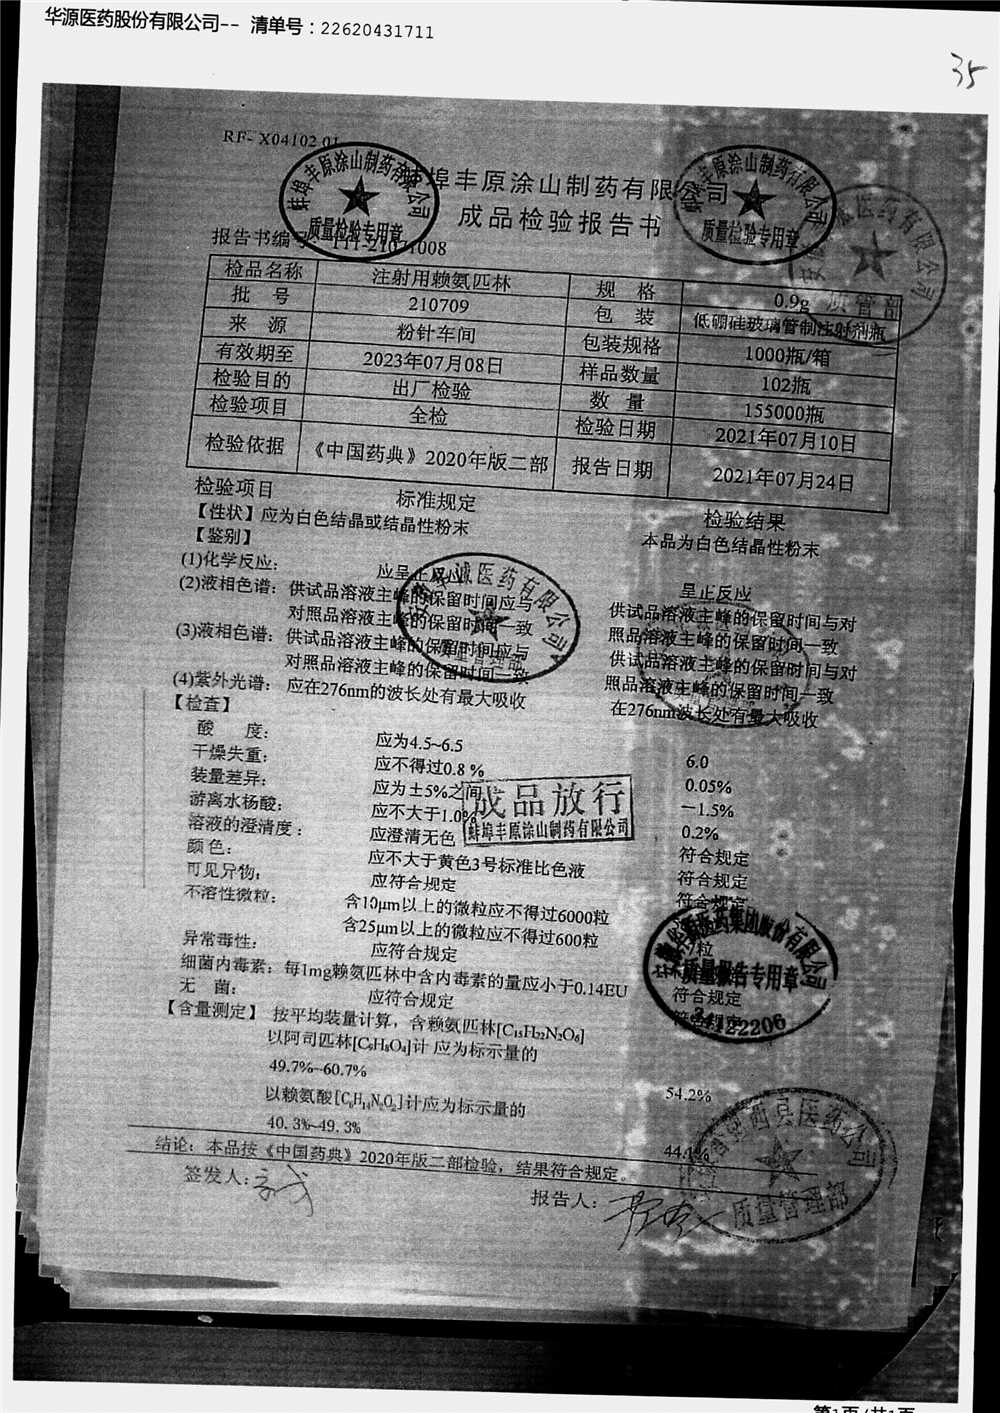 华源医药股份有限公司-- 清单号：22620431711
35
RF- X04102 01
埠丰原涂山制药有限公司
成品检验报告书
报告书编号
检品名称 注射用赖氨匹林 规 格 0.9g
批 号 210709 包 装 低硼硅玻璃管制注射剂瓶
来 源 粉针车间 包装规格 1000瓶/箱
有效期至 2023年07月08日 样品数量 102瓶
检验目的 出厂检验 数 量 155000瓶
检验项目 全检 检验日期 2021年07月10日
检验依据 《中国药典》2020年版二部 报告日期 2021年07月24日
检验项目 标准规定 检验结果
【性状】应为白色结晶或结晶性粉末 本品为白色结晶性粉末
【鉴别】
(1)化学反应： 应呈正反应 呈正反应
(2)液相色谱：供试品溶液主峰的保留时间应与 供试品溶液主峰的保留时间与对
对照品溶液主峰的保留时间一致 照品溶液主峰的保留时间一致
(3)液相色谱：供试品溶液主峰的保留时间应与 供试品溶液主峰的保留时间与对
对照品溶液主峰的保留时间一致 照品溶液主峰的保留时间一致
(4)紫外光谱：应在276nm的波长处有最大吸收 在276nm波长处有最大吸收
【检查】
酸 度： 应为4.5~6.5 6.0
干燥失重： 应不得过0.8 % 0.05%
装量差异： 应为±5%之间 －1.5%
游离水杨酸： 应不大于1.0% 0.2%
溶液的澄清度： 应澄清无色 符合规定
颜 色： 应不大于黄色3号标准比色液 符合规定
可见异物： 应符合规定 符合规定
不溶性微粒： 含10μm以上的微粒应不得过6000粒
含25μm以上的微粒应不得过600粒 粒
异常毒性： 应符合规定
细菌内毒素：每1mg赖氨匹林中含内毒素的量应小于0.14EU 符合规定
无 菌： 应符合规定 符合规定
【含量测定】 按平均装量计算，含赖氨匹林[C₁₅H₂₂N₂O₆]
以阿司匹林[C₉H₈O₄]计 应为标示量的
49.7%~60.7% 54.2%
以赖氨酸[C₆H₁₄N₂O₂]计应为标示量的
40.3%~49.3% 44.1%
结论：本品按《中国药典》2020年版二部检验，结果符合规定。
签发人： 报告人：
蚌埠丰原涂山制药有限公司
质量检验专用章
蚌埠丰原涂山制药有限公司
质量检验专用章
医药有限公司
质管部
华源医药有限公司
成品放行
蚌埠丰原涂山制药有限公司
华源医药集团股份有限公司
质量报告专用章
34122206
县医药公司
质量管理部
第1页/共1页